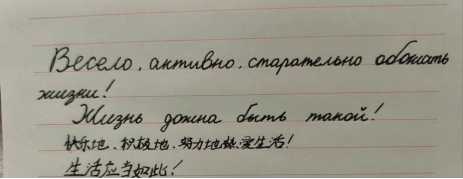 Весело, активно, старательно обожать
жизни!
Жизнь дожна быть такой!
快乐地、积极地、努力地热爱生活!
生活应当如此!